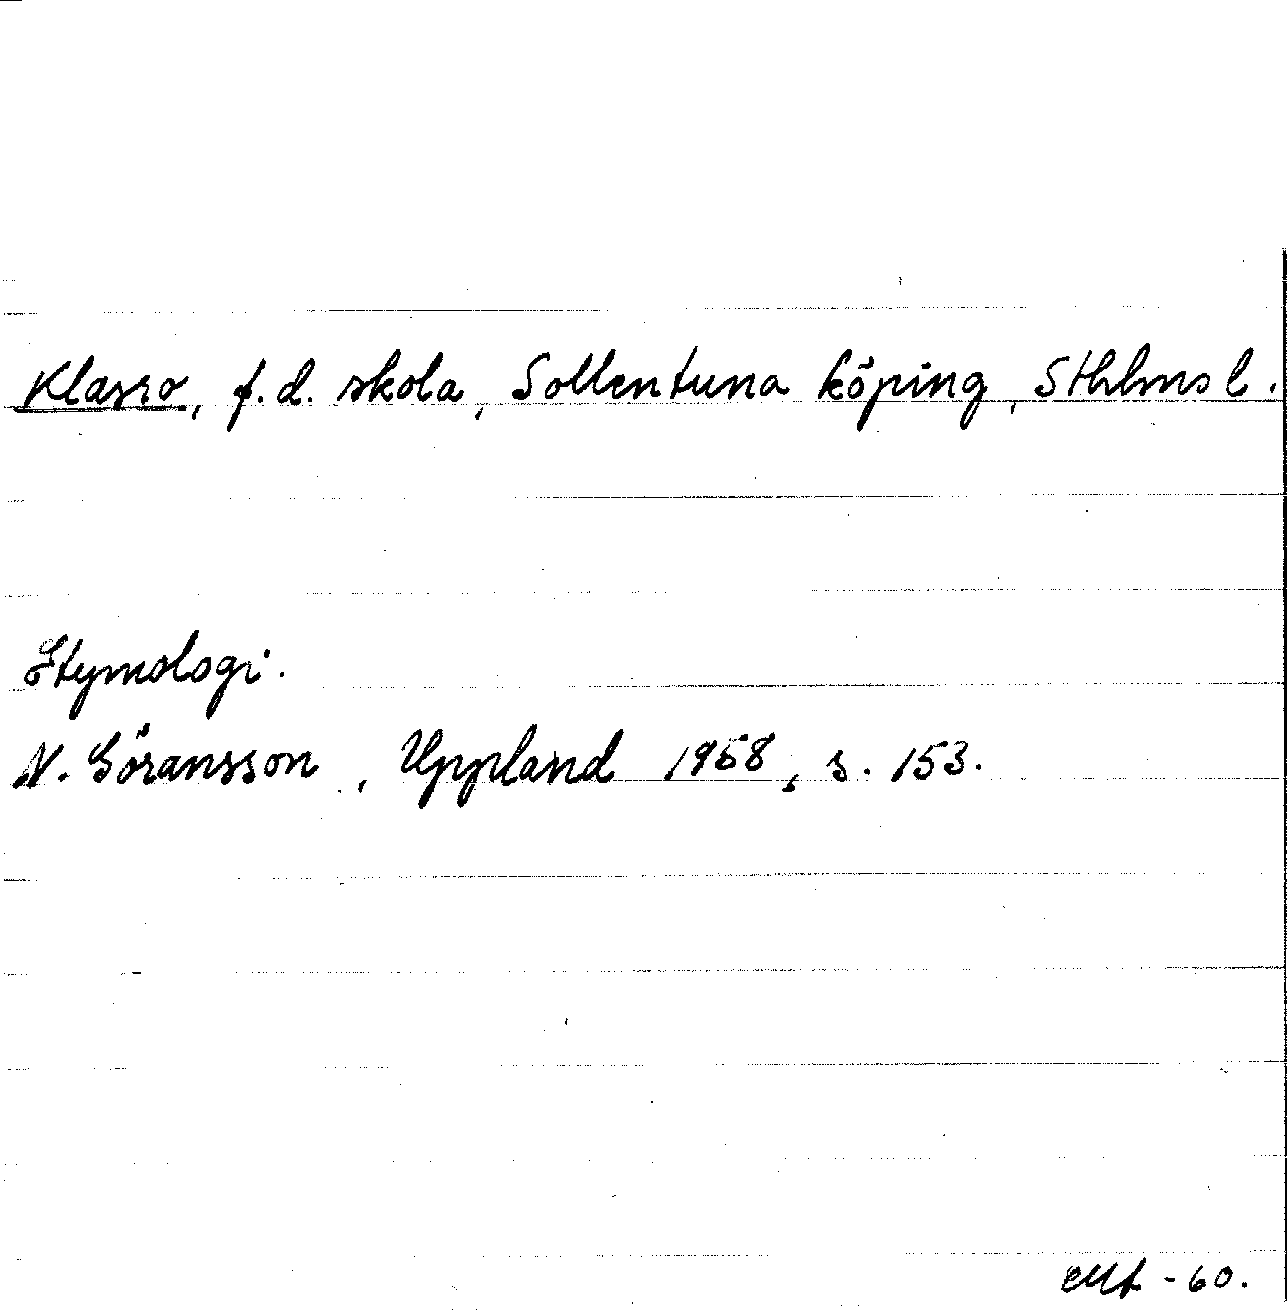 Klasro, f.d. skola, Sollentuna köping, Sthlms l.
Etymologi.
N. Göransson, Uppland 1958, s. 153.
-60.